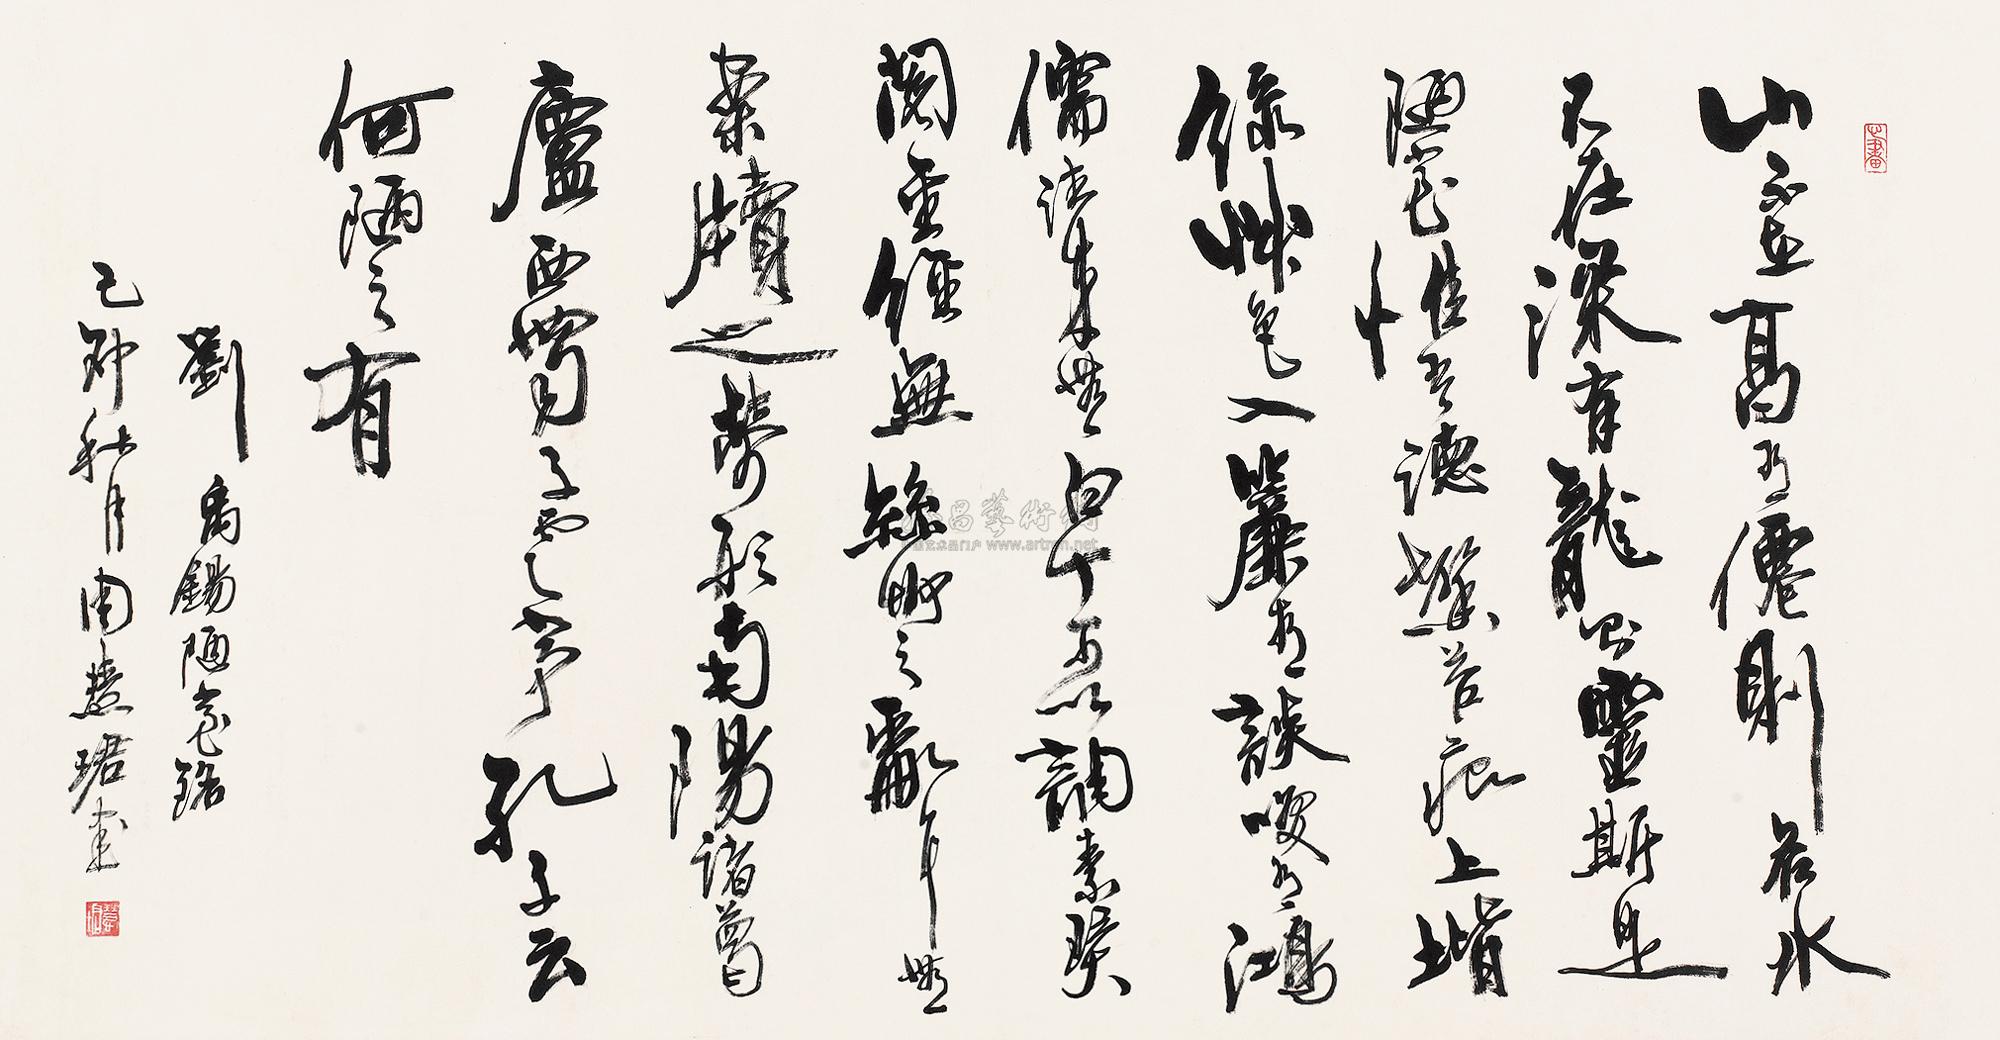 山不在高有僊則名水
不在深有龍則靈斯是
陋室惟吾德馨苔痕上堦
綠艸色入簾青談咲有鴻
儒往来無白丁可以調素琴
閱金經無絲竹之亂耳無
案牘之勞形南陽諸葛
廬西蜀子雲亭孔子云
何陋之有
劉禹錫陋室銘
己卯秋月周慧珺書
慧珺
昌藝術網
艺术品门户 www.artron.net